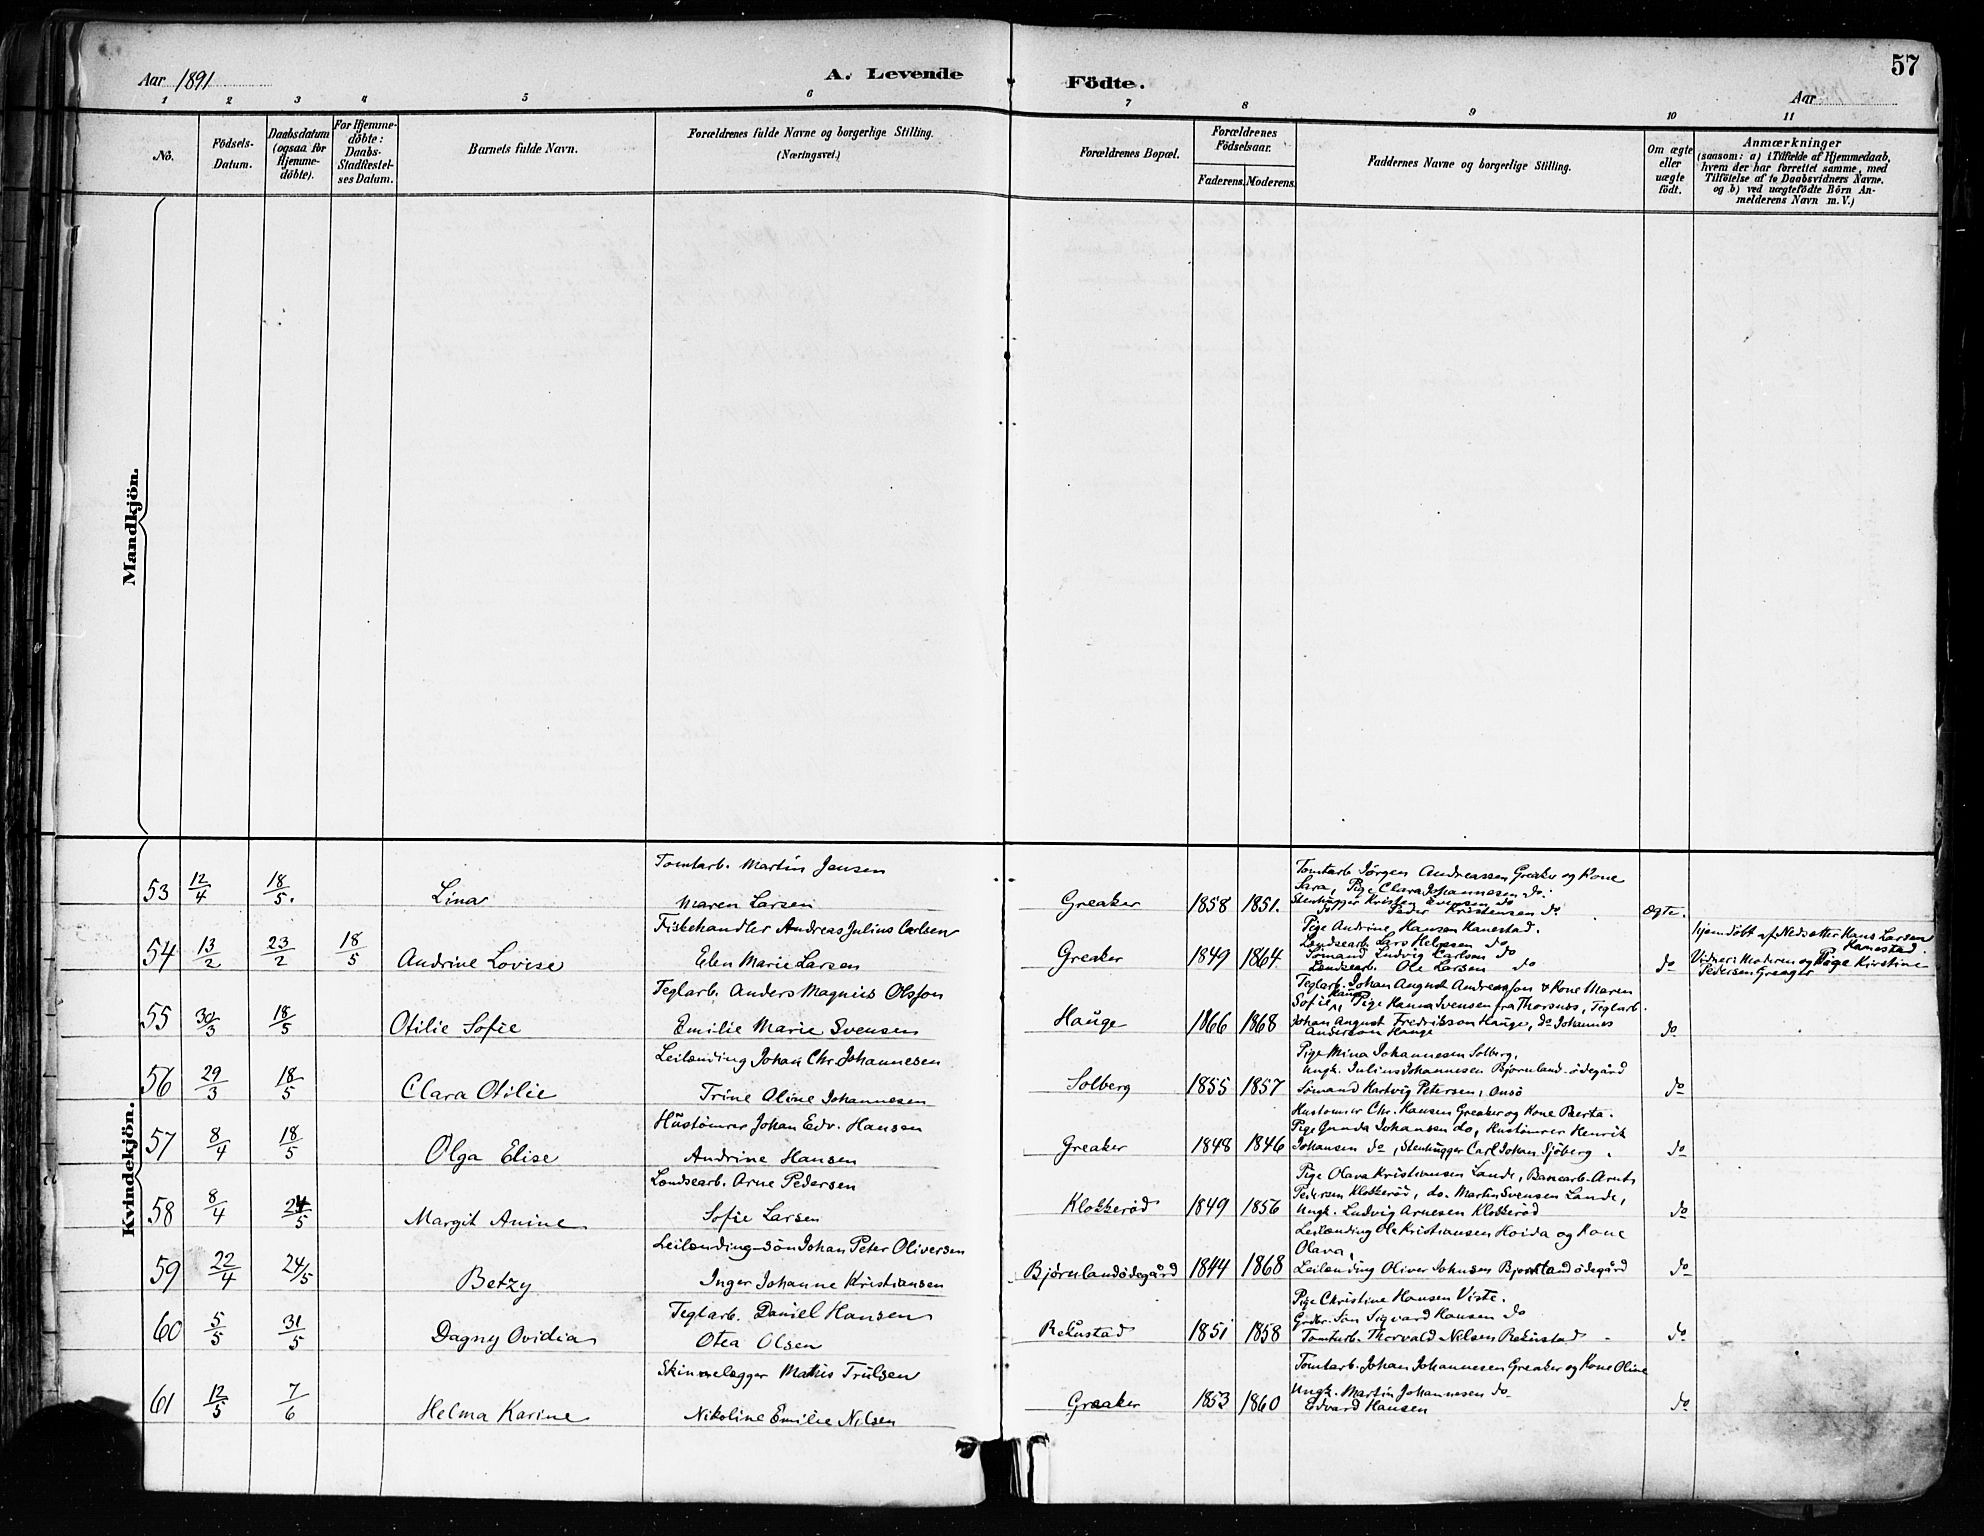 57
Aar 1891
A. Levende
Födte.
Aar
1 2 3 4 5 6 7 8 9 10 11
Nô.
Födsels-
Datum.
Daabsdatum
(ogsaa for
Hjemme-
döbte).
For Hjemme-
döbte:
Daabs-
Stadfæstel-
ses Datum.
Barnets fulde Navn.
Forældrenes fulde Navne og borgerlige Stilling.
(Næringsvei.)
Forældrenes Bopæl.
Forældrenes
Födselsaar.
Faderens. Moderens.
Faddernes Navne og borgerlige Stilling.
Om ægte
eller
uægte
födt.
Anmærkninger
(saasom: a) i Tilfælde af Hjemmedaab,
hvem der har forrettet samme, med
Tilföielse af to Daabsvidners Navne.
og b) ved uægtefödte Börn An-
melderens Navn m.V.)
Mandkjön.
Kvindekjön.
53 12/4 18/5. Lina
Tomtarb. Martin Jensen
Maren Larsen
Greaker 1858 1851.
Tomtarb Jörgen Andreassen Greaker og Kone
Sara, Pige Clara Johannesen do.
Stenhugger Kristen Evensen do
Peder Kristensen do
Ægte.
54 13/2 23/2 18/5 Andrine Lovise
Fiskehandler Andreas Julius Carlsen
Elen Marie Larsen
Greaker 1849 1864
Pige Andrine Hansen Hanestad.
Landsearb Lars Helgesen do
Sömand Ludvig Carlsen do
Landsearb. Ole Larsen do
do
hjemdöbt af Hans Larsen
Hanestad.
Vidner: Moderen og Pige Kirstine
Pedersen Greager
55 30/3 18/5 Otilie Sofie
Teglarb. Anders Magnus Olsson
Emilie Marie Svensen
Hauge 1866 1868
Teglarb. Johan August Andreasson & Kone Maren
Sofie Hauge, Pige Hanna Svensen fra Thorsnes, Teglarb.
Johan August Fredrikson Hauge, do Johannes
Anderson Hauge
do
56 29/3 18/5 Clara Otilie
Leilænding Johan Chr. Johannesen
Trine Oline Johannesen
Solberg 1855 1857
Pige Mina Johannesen Solberg,
Ungk. Julius Johannesen Bjornland-ödegård
Sömand Hartvig Petersen, Onsö
do
57 8/4 18/5 Olga Elise
Hustömrer Johan Edv. Hansen
Andrine Hansen
Greaker 1848 1846
Hustomrer Chr. Hansen Greaker og Kone Berta.
Pige Gunda Johansen do, Hustömrer Henrik
Johansen do, Stenhugger Carl Johan Sjöberg.
do
58 8/4 24/5 Margit Anine
Landsearb. Arne Pedersen
Sofie Larsen
Klokkeröd 1849 1856
Pige Olava Kristiansen Lande, Banearb. Arnt
Pedersen Klokkeröd, do. Martin Svensen Lande,
Ungk. Ludvig Arnesen Klokkeröd
do
59 22/4 24/5 Betzy
Leilænding-sön Johan Peter Oliversen
Inger Johanne Kristiansen
Björnlandödegård 1844 1868
Leilænding Ole Kristiansen Hoida og Kone
Olava,
Leilænding Oliver Johnsen Bjornland ödegård
do
60 5/5 31/5 Dagny Ovidia
Teglarb. Daniel Hansen
Otea Olsen
Rekustad 1851 1858
Pige Christine Hansen Viste.
Grdbr. Sön Sigvard Hansen do
Tomtarb. Thorvald Nilsen Rekustad
do
61 12/5 7/6 Helma Karine
Skinnelægger Mathis Trulsen
Nikoline Emilie Nilsen
Greaker 1853 1860
Tomtarb. Johan Johannesen Greaker og Kone Oline
Ungk. Martin Johannesen do
Edvard Hansen
do